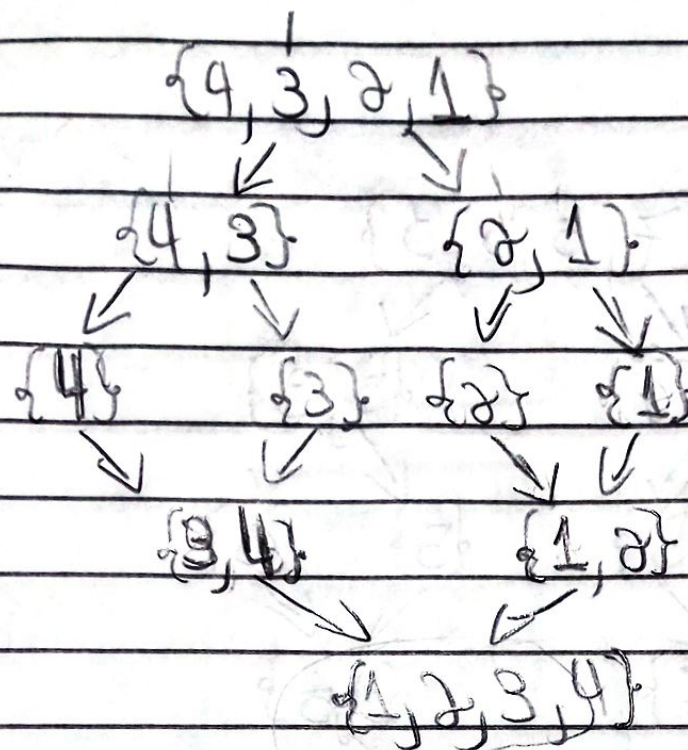 {4, 3, 2, 1}
{4, 3} {2, 1}
{4} {3} {2} {1}
{3, 4} {1, 2}
{1, 2, 3, 4}